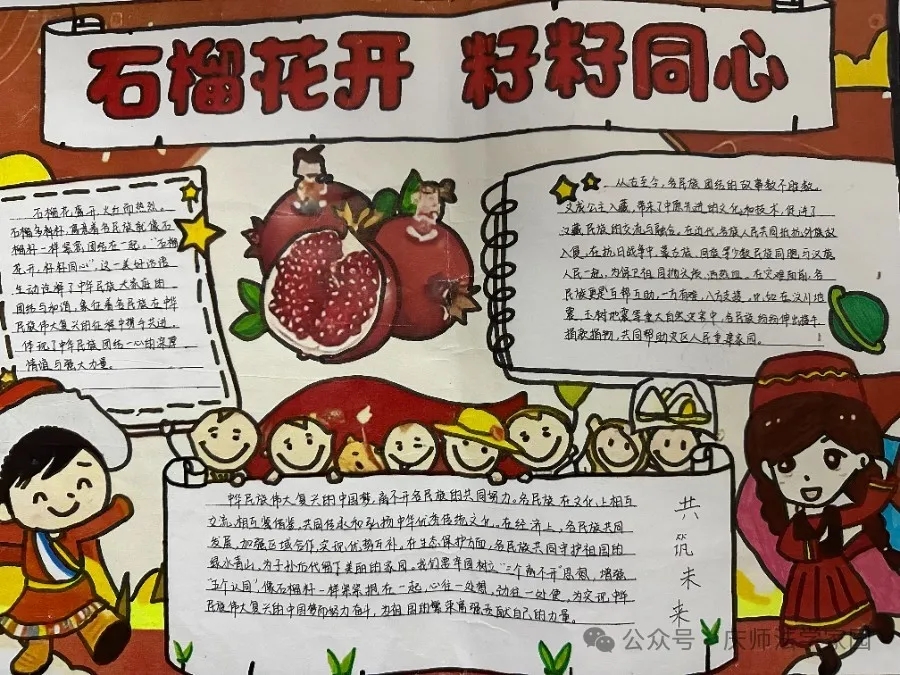 石榴花开 籽籽同心
石榴花离开,火红而热烈。
石榴多籽籽,寓意着各民族就像石
榴籽一样紧密团结在一起。“石榴
花开,籽籽同心”,这一美好话语
生动诠释了中华民族大家庭的
团结与和谐,象征着各民族在中华
民族伟大复兴的征程中携手共进,
体现了中华民族团结一心的深厚
情谊与强大力量。
从古至今,各民族团结的故事数不胜数。
文成公主入藏,带来了中原先进的文化和技术,促进了
汉藏民族的交流与融合。在近代,各族人民共同抵抗外族
入侵,在抗日战争中,蒙古族、回族等少数民族同胞与汉族
人民一起,为保卫祖国抛头颅、洒热血。在灾难面前,各
民族更是互帮互助,一方有难,八方支援,比如在汶川地
震、玉树地震等重大自然灾害中,各民族纷纷伸出援手
捐款捐物,共同帮助灾区人民重建家园。
中华民族伟大复兴的中国梦,离不开各民族的共同努力。各民族在文化上相互
交流,相互借鉴,共同传承和弘扬中华优秀传统文化。在经济上,各民族共同
发展,加强区域合作,实现优势互补。在生态保护方面,各民族共同守护祖国的
绿水青山,为子孙后代留下美丽的家园。我们要牢固树立“三个离不开”思想,增强
“五个认同”,像石榴籽一样紧紧抱在一起,心往一处想,劲往一处使,为实现中华
民族伟大复兴的中国梦而努力奋斗,为祖国的繁荣富强贡献自己的力量。
共
筑
未
来
公众号·庆师法学家园